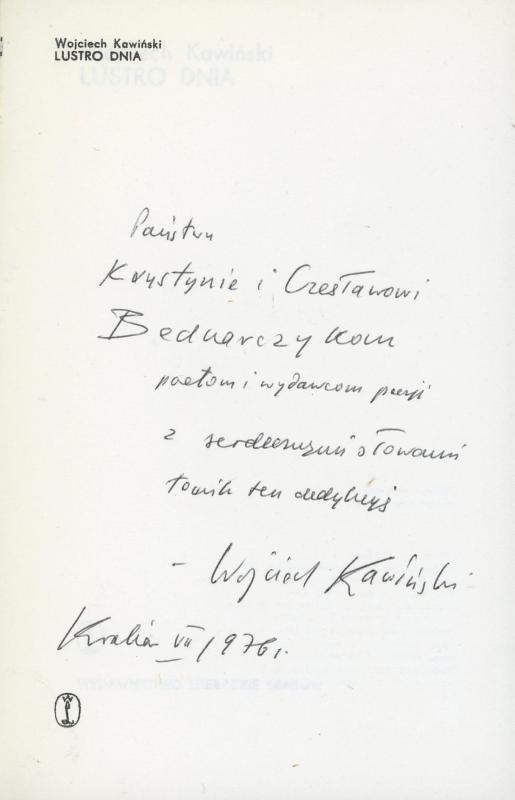 Wojciech Kawiński
LUSTRO DNIA
Państwu
Krystynie i Czesławowi
Bednarczykom
poetom i wydawcom poezji
z serdecznymi słowami
tomik ten dedykuję
- Wojciech Kawiński
Kraków VII 1976 r.